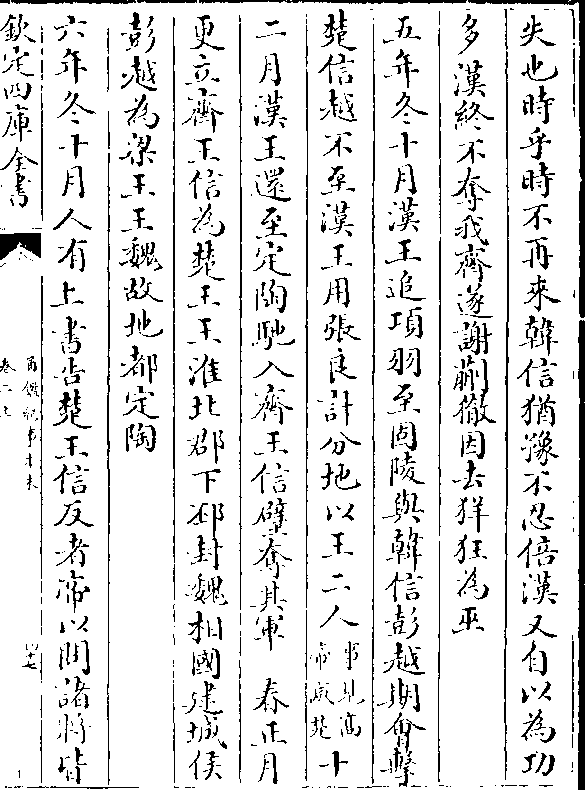 失也時乎時不再來韓信猶豫不忍倍漢又自以為功
多漢終不奪我齊遂謝蒯徹因去徉狂為巫
五年冬十月漢王追項羽至固陵與韓信彭越期會擊
楚信越不至漢王用張良計分地以王二人事見高帝滅楚十
二月漢王還至定陶馳入齊王信壁奪其軍　春正月
更立齊王信為楚王王淮北都下邳封魏相國建城侯
彭越為梁王王魏故地都定陶
六年冬十月人有上書告楚王信反者帝以問諸將皆
欽定四庫全書
通鑑紀事本末
卷二上